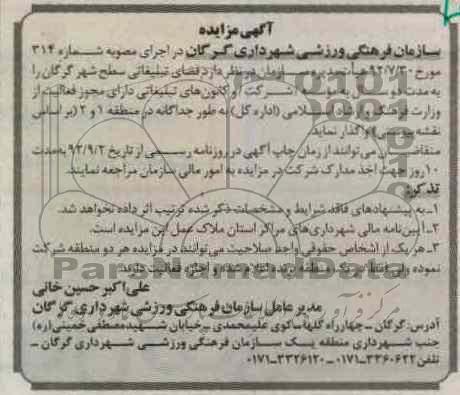 آگهی مزایده
سازمان فرهنگی ورزشی شهرداری گرگان در اجرای مصوبه شماره ۳۱۴
مورخ ۹۲/۷/۳۰ هیأت مدیره سازمان در نظر دارد فضای تبلیغاتی سطح شهر گرگان را
به مدت دو سال به مؤسسه / شرکت / و کانون‌های تبلیغاتی دارای مجوز فعالیت از
وزارت فرهنگ و ارشاد اسلامی (اداره کل) به طور جداگانه در منطقه ۱ و ۲ (بر اساس
نقشه پیوستی) واگذار نماید.
متقاضیان می توانند از زمان چاپ آگهی در روزنامه رسمی از تاریخ ۹۲/۹/۲ به مدت
۱۰ روز جهت اخذ مدارک شرکت در مزایده به امور مالی سازمان مراجعه نمایند.
تذکر:
۱- به پیشنهادهای فاقد شرایط و مشخصات ذکر شده ترتیب اثر داده نخواهد شد.
۲- آیین‌نامه مالی شهرداری‌های مراکز استان ملاک عمل این مزایده است.
۳- هر یک از اشخاص حقوقی واجد صلاحیت می‌توانند در مزایده هر دو منطقه شرکت
نموده ولی در یک منطقه برنده اعلام شده و اجازه فعالیت دارند.
علی اکبر حسین خانی
مدیر عامل سازمان فرهنگی ورزشی شهرداری گرگان
آدرس: گرگان - چهارراه گلها - کوی علیمحمدی - خیابان شهید مصطفی خمینی (ره)
جنب شهرداری منطقه یک سازمان فرهنگی ورزشی شهرداری گرگان -
تلفن ۳۳۶۰۶۲۲-۰۱۷۱ - ۳۳۲۶۱۲۰-۰۱۷۱
ParsNamadData